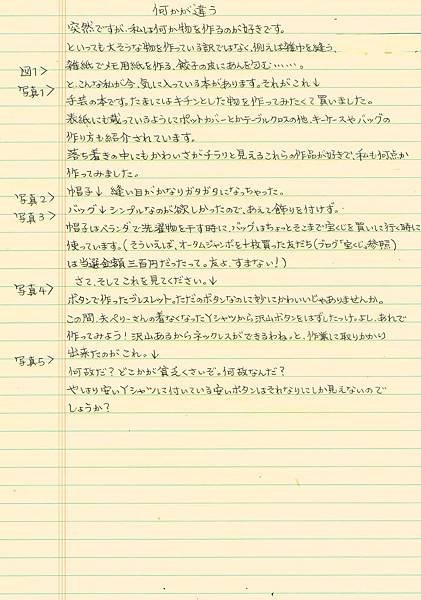 何かが違う
突然ですが、私は何か物を作るのが好きです。
といっても大そうな物を作っている訳ではなく、例えば雑巾を縫う、
図1> 雑紙でメモ用紙を作る、餃子の皮にあんを包む……。
写真1> と、こんな私が今、気に入っている本があります。それがこれ↓
手芸の本です。たまにはキチンとした物を作ってみたくて買いました。
表紙にも載っているようにポットカバーとかテーブルクロスの他、キーケースやバッグの
作り方も紹介されています。
落ち着きの中にもかわいさがチラリと見えるこれらの作品が好きで、私も何点か
作ってみました。
写真2> 帽子↓ 縫い目がかなりガタガタになっちゃった。
写真3> バッグ↓ シンプルなのが欲しかったので、あえて飾りを付けず。
帽子はベランダで洗濯物を干す時に、バッグはちょっとそこまで宝くじを買いに行く時に
使っています。(そういえば、オータムジャンボを十枚買った友だち(ブログ「宝くじ」参照)
は当選金額三百円だったって。友よ、すまない!)
さて、そしてこれを見てください。↓
写真4> ボタンで作ったブレスレット。ただのボタンなのに妙にかわいいじゃありませんか。
この間、夫ペリーさんの着なくなったYシャツから沢山ボタンをはずしたっけ。よし、あれで
作ってみよう!沢山あるからネックレスができるわね。と、作業に取りかかり
出来たのがこれ。↓
写真5> 何故だ?どこかが貧乏くさいぞ。何故なんだ?
やはり安いYシャツに付いている安いボタンはそれなりにしか見えないので
しょうか?